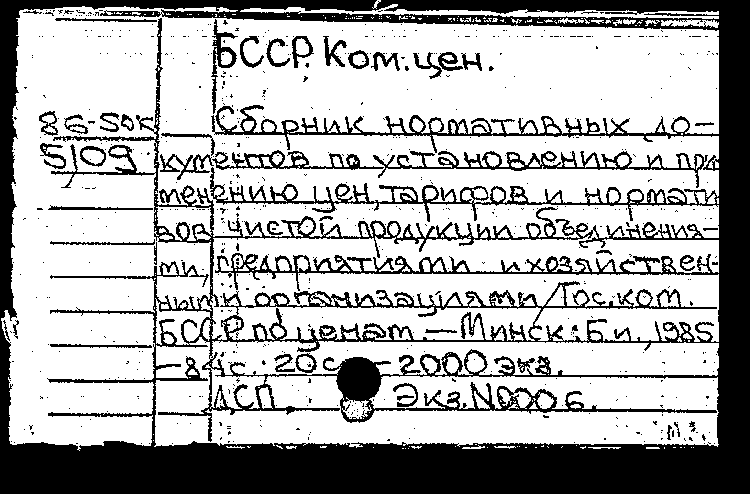 БССР. Ком. цен.
86-5ДК
5109
Сборник нормативных до-
кументов по установлению и при
менению цен, тарифов и нормати
вов чистой продукции объединения-
ми, предприятиями и хозяйствен-
ными организациями / Гос. ком.
БССР по ценам. — Минск: Б.и., 1985
— 84 с.; 20 с — 2000 экз.
ДСП. Экз. N0006.